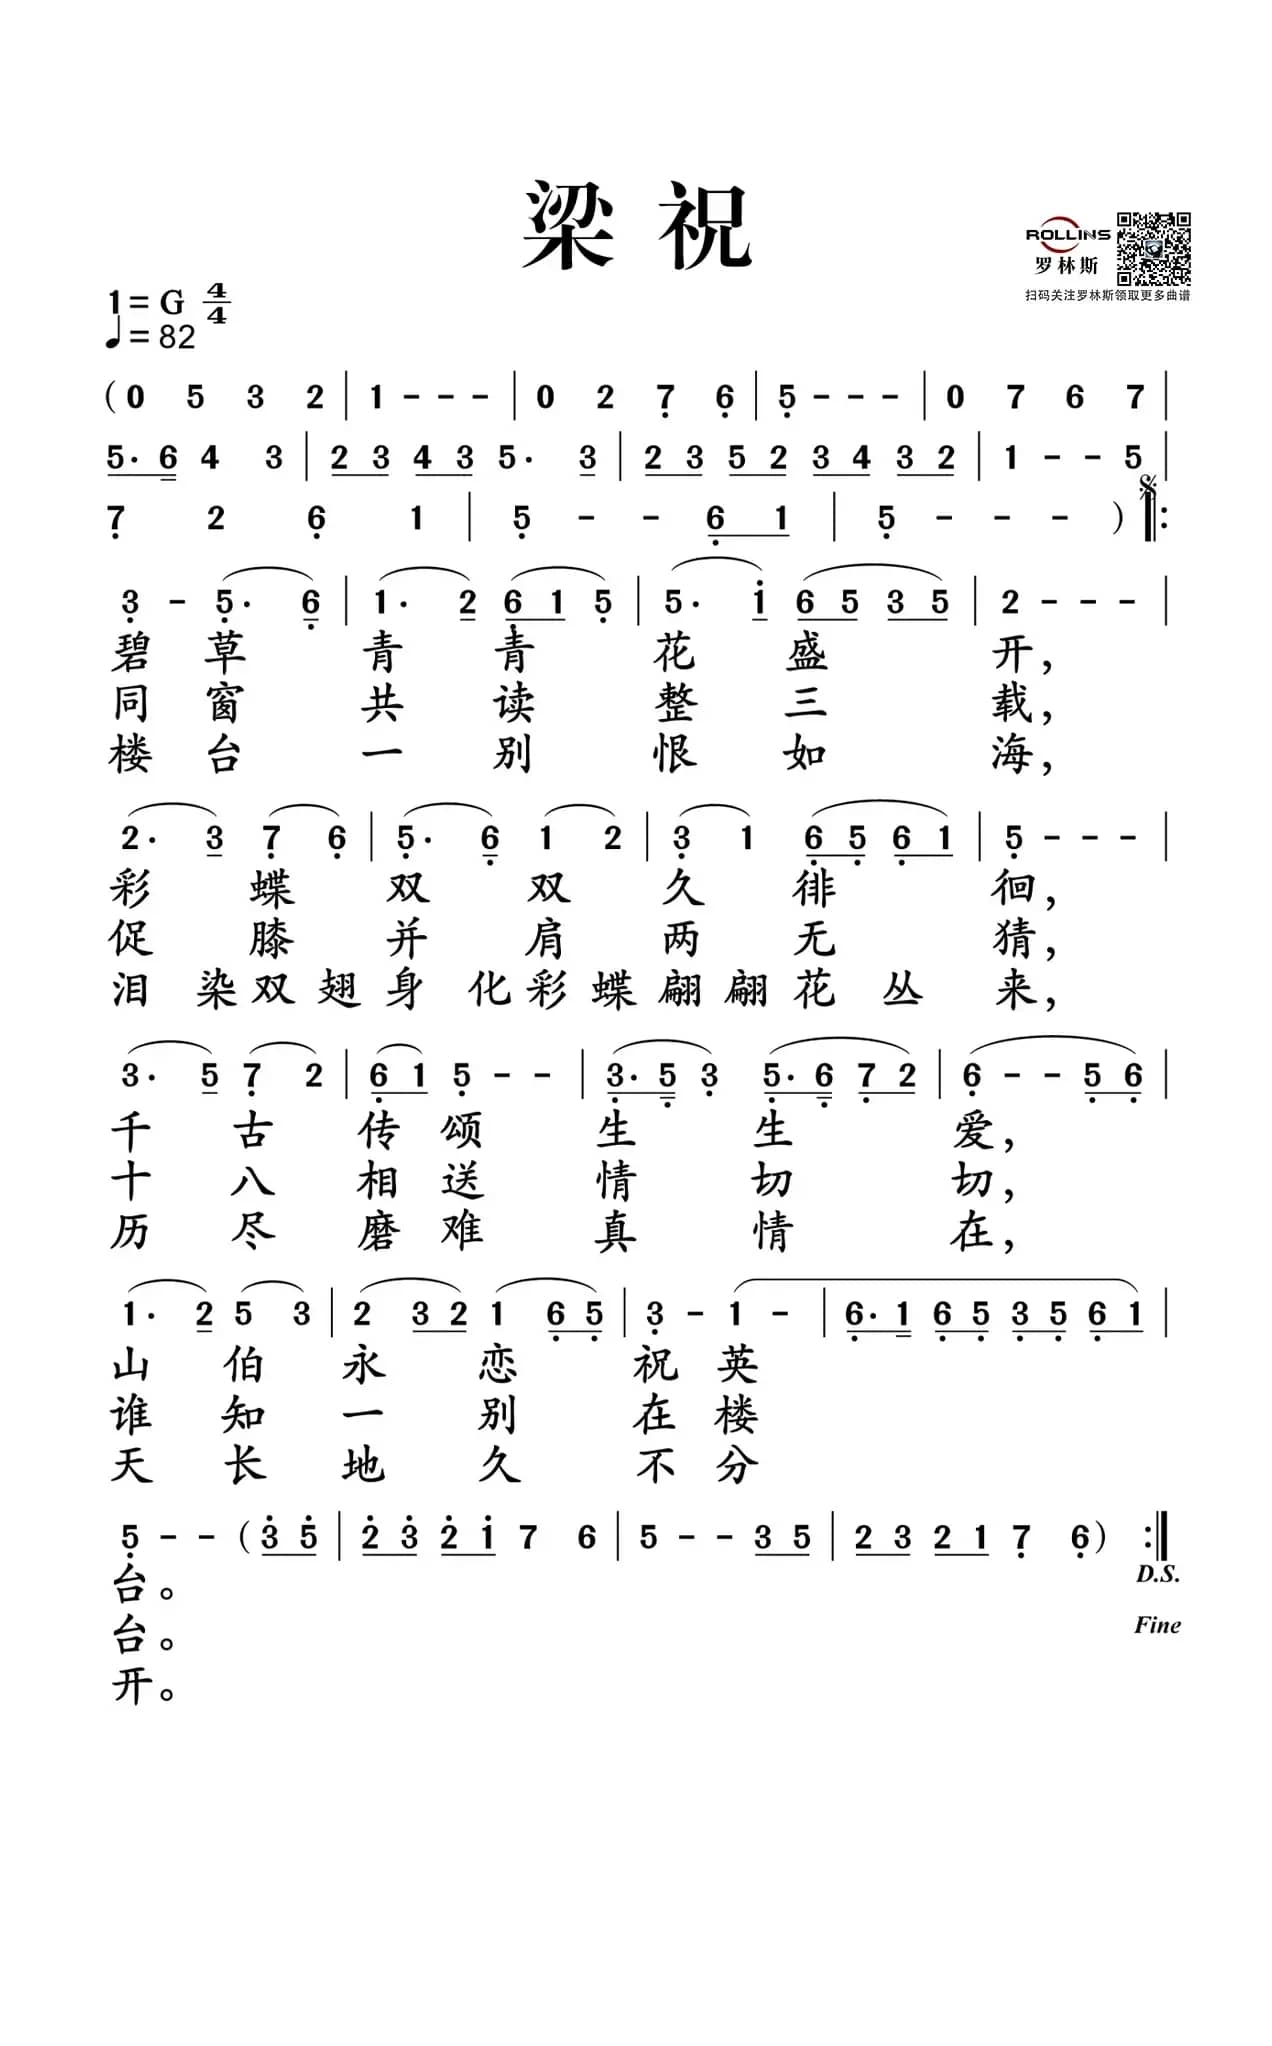 梁祝
ROLLINS
罗林斯
扫码关注罗林斯领取更多曲谱
1=G 4/4
♩=82
(0 5 3 2 | 1 - - - | 0 2 7̣ 6̣ | 5̣ - - - | 0 7 6 7 |
5· 6 4 3 | 2 3 4 3 5· 3 | 2 3 5 2 3 4 3 2 | 1 - - 5 |
7̣ 2 6̣ 1 | 5̣ - - 6̣ 1 | 5̣ - - - ) 𝄋 ‖:
3̣ - 5̣· 6̣ | 1· 2 6̣ 1 5̣ | 5· 1̇ 6 5 3 5 | 2 - - - |
碧草青青花盛开，
同窗共读整三载，
楼台一别恨如海，
2· 3 7̣ 6̣ | 5̣· 6̣ 1 2 | 3̣ 1 6̣ 5̣ 6̣ 1 | 5̣ - - - |
彩蝶双双久徘徊，
促膝并肩两无猜，
泪染双翅身化彩蝶翩翩花丛来，
3· 5 7̣ 2 | 6̣ 1 5̣ - - | 3̣· 5̣ 3̣ 5̣· 6̣ 7̣ 2 | 6̣ - - 5̣ 6̣ |
千古传颂生生爱，
十八相送情切切，
历尽磨难真情在，
1· 2 5 3 | 2 3 2 1 6̣ 5̣ | 3̣ - 1 - | 6̣· 1 6̣ 5̣ 3̣ 5̣ 6̣ 1 |
山伯永恋祝英
谁知一别在楼
天长地久不分
5̣ - - (3̇ 5̇ | 2̇ 3̇ 2̇ 1̇ 7 6 | 5 - - 3 5 | 2 3 2 1 7̣ 6̣) :‖
台。
D.S.
台。
Fine
开。